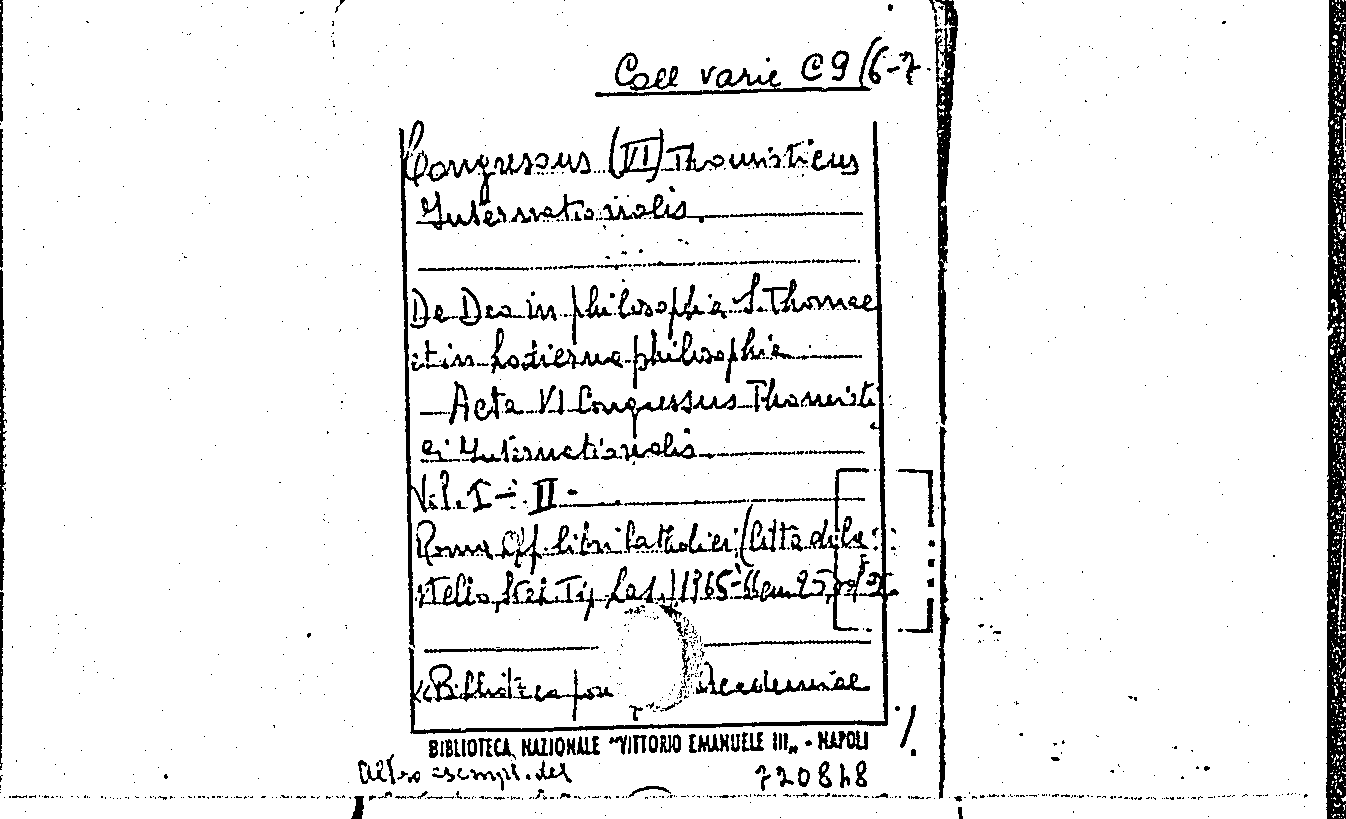 Coll varie C9/6-7
Congressus (VI) Thomisticus
Internationalis.
De Deo in philosophia S. Thomae
et in hodierna philosophia
— Acta VI Congressus Thomisti
ci Internationalis.
Vol. I - II -
Roma, Off. libri Catholici (Città di Ca
stello, Tip. 1965-66 cm. 25,
«Biblioteca pon Academiae
BIBLIOTECA NAZIONALE "VITTORIO EMANUELE III„ - NAPOLI ./.
altro esempl. del
720848